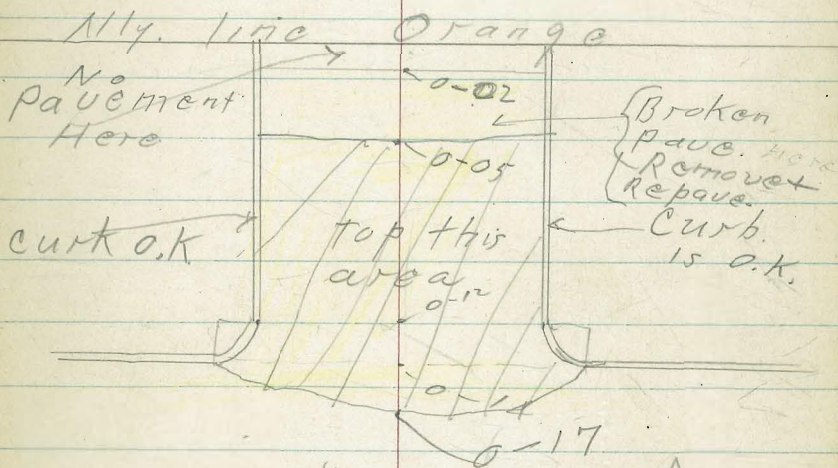 Ally. line Orange
No
Pavement
Here
0-02
Broken
Pave. Here
Remove +
Repave.
0-05
curb O.K
top this
area
Curb.
is O.K.
0-12
0-14
0-17